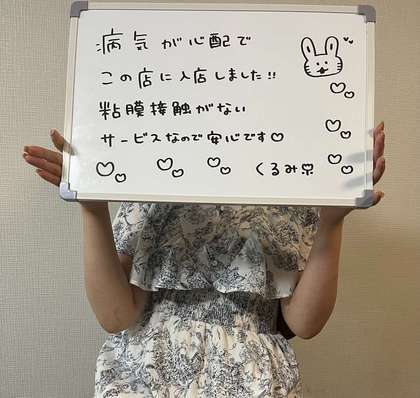 病気が心配で
この店に入店しました!!
粘膜接触がない
サービスなので安心です♡
くるみ